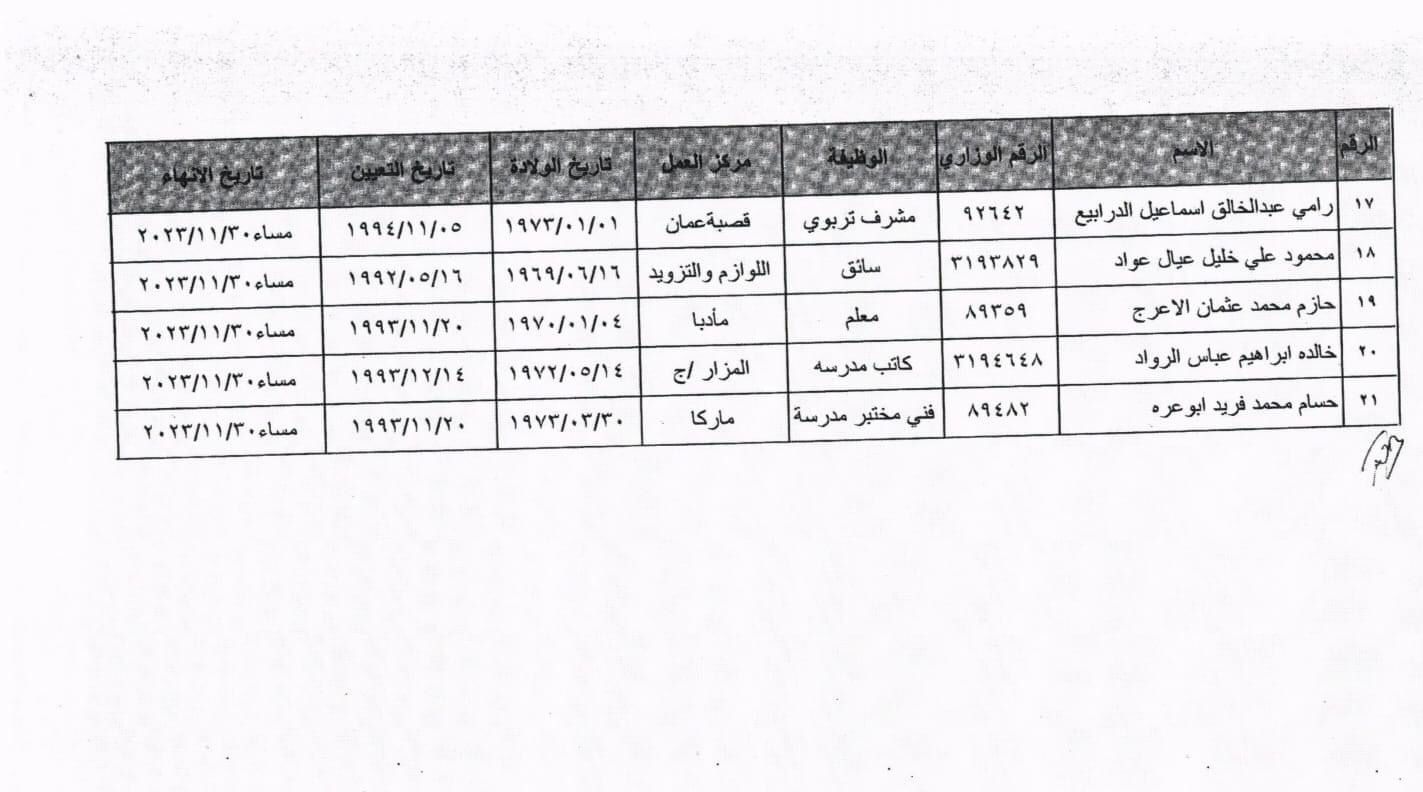 الرقم الاسم الرقم الوزاري الوظيفة مركز العمل تاريخ الولادة تاريخ التعيين تاريخ الانهاء
١٧ رامي عبدالخالق اسماعيل الدرابيع ٩٢٦٤٢ مشرف تربوي قصبةعمان ١٩٧٣/٠١/٠١ ١٩٩٤/١١/٠٥ مساء٢٠٢٣/١١/٣٠
١٨ محمود علي خليل عيال عواد ٣١٩٣٨٢٩ سائق اللوازم والتزويد ١٩٦٩/٠٦/١٦ ١٩٩٢/٠٥/١٦ مساء٢٠٢٣/١١/٣٠
١٩ حازم محمد عثمان الاعرج ٨٩٣٥٩ معلم مأدبا ١٩٧٠/٠١/٠٤ ١٩٩٣/١١/٢٠ مساء٢٠٢٣/١١/٣٠
٢٠ خالده ابراهيم عباس الرواد ٣١٩٤٦٤٨ كاتب مدرسه المزار /ج ١٩٧٢/٠٥/١٤ ١٩٩٣/١٢/١٤ مساء٢٠٢٣/١١/٣٠
٢١ حسام محمد فريد ابوعره ٨٩٤٨٢ فني مختبر مدرسة ماركا ١٩٧٣/٠٣/٣٠ ١٩٩٣/١١/٢٠ مساء٢٠٢٣/١١/٣٠